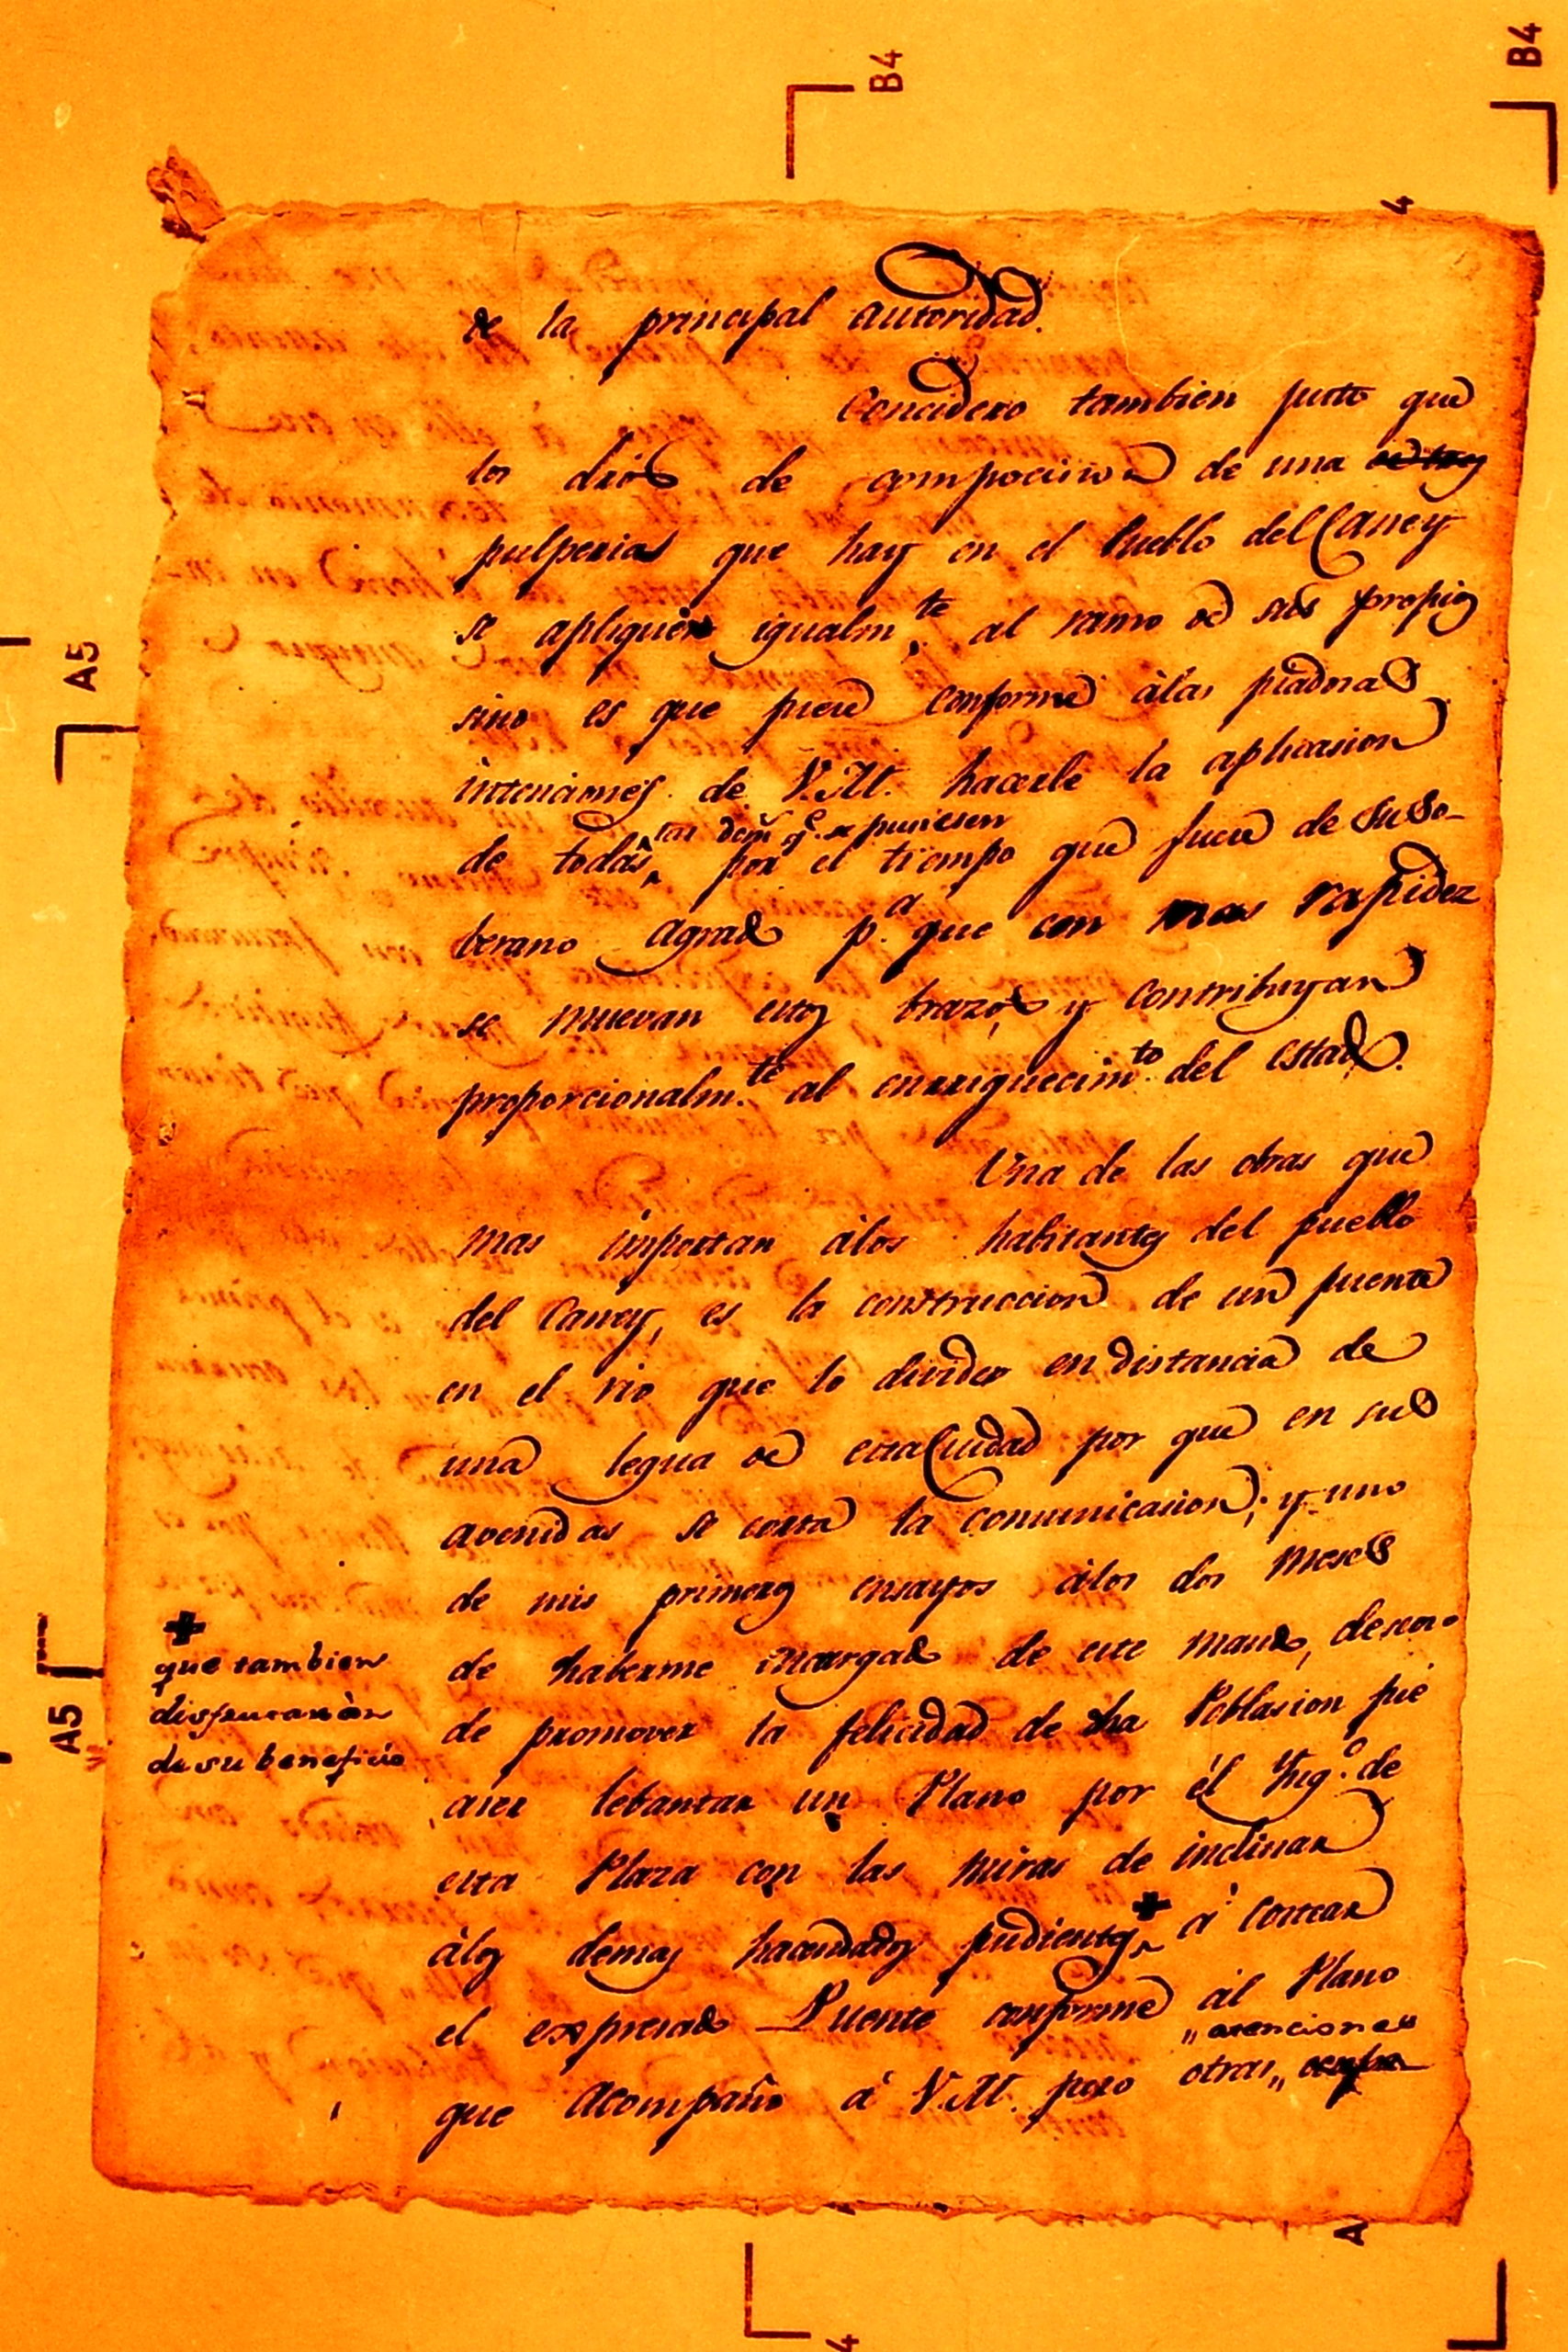 B4
B4
4
de la principal autoridad.
Concidero tambien justo que
los dros de compocision de una
pulperias que hay en el Pueblo del Caney
se apliquen igualm.te al ramo de sus propios
sino es que fuere conforme àlas piadosas
intenciones de V.M. hacerle la aplicasion
las dem.s q.e se pusiesen
de todas, por el tiempo que fuere de su So-
berano agrado p.a que con mas rapidez
se muevan estos brazos, y contribuyan
proporcionalm.te al enrriquecim.to del estado.
Una de las obras que
mas importan àlos habitantes del pueblo
del Caney, es la construccion de un puente
en el rio que lo divide en distancia de
una legua de esta Ciudad por que en sus
avenidas se corta la comunicasion; y uno
de mis primeros ensayos àlos dos meses
de haberme encargado de este mando, deseoso
de promover la felicidad de la Poblasion fué
aser lebantar un Plano por él Yng.o de
esta Plaza con las miras de inclinar
àlos demas hacendados pudientes + à costear
el expresado Puente conforme àl Plano
atenciones
que acompaño à V.M. pero otras
+
que tambien
disfrutaràn
de su beneficio
A5
A5
A
4